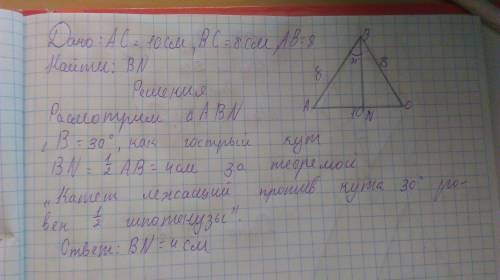 Дано: AC = 10 см, BC = 8 см, AB = 8
Найти: BN
Решения
Рассмотрим △ ABN
∠B = 30°, как гострый кут
BN = 1/2 AB = 4 см за теоремой
„Катет лежащий против кута 30° ро-
вен 1/2 гипотенузы".
Ответ: BN = 4 см
B
8
8
A
10
N
C